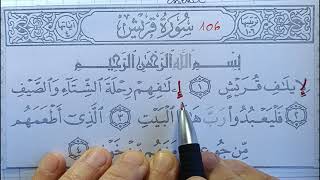 سُورَةُ قُرَيْشٍ 106
بِسْمِ اللَّهِ الرَّحْمَٰنِ الرَّحِيمِ
لِإِيلَٰفِ قُرَيْشٍ ١ إِۦلَٰفِهِمْ رِحْلَةَ الشِّتَآءِ وَالصَّيْفِ
٢ فَلْيَعْبُدُوا۟ رَبَّ هَٰذَا الْبَيْتِ ٣ الَّذِىٓ أَطْعَمَهُم
مِّن جُوعٍ خَوْفٍ ٤